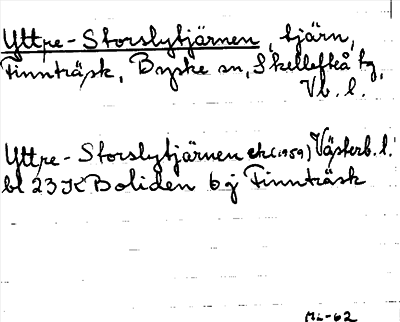 Yttre-Storslytjärnen, tjärn,
Finnträsk, Byske sn, Skellefteå tg,
Vb. l.
Yttre-Storslytjärnen ek (1959) Västerb. l.
bl 23 K Boliden 6 j Finnträsk
Mi-62